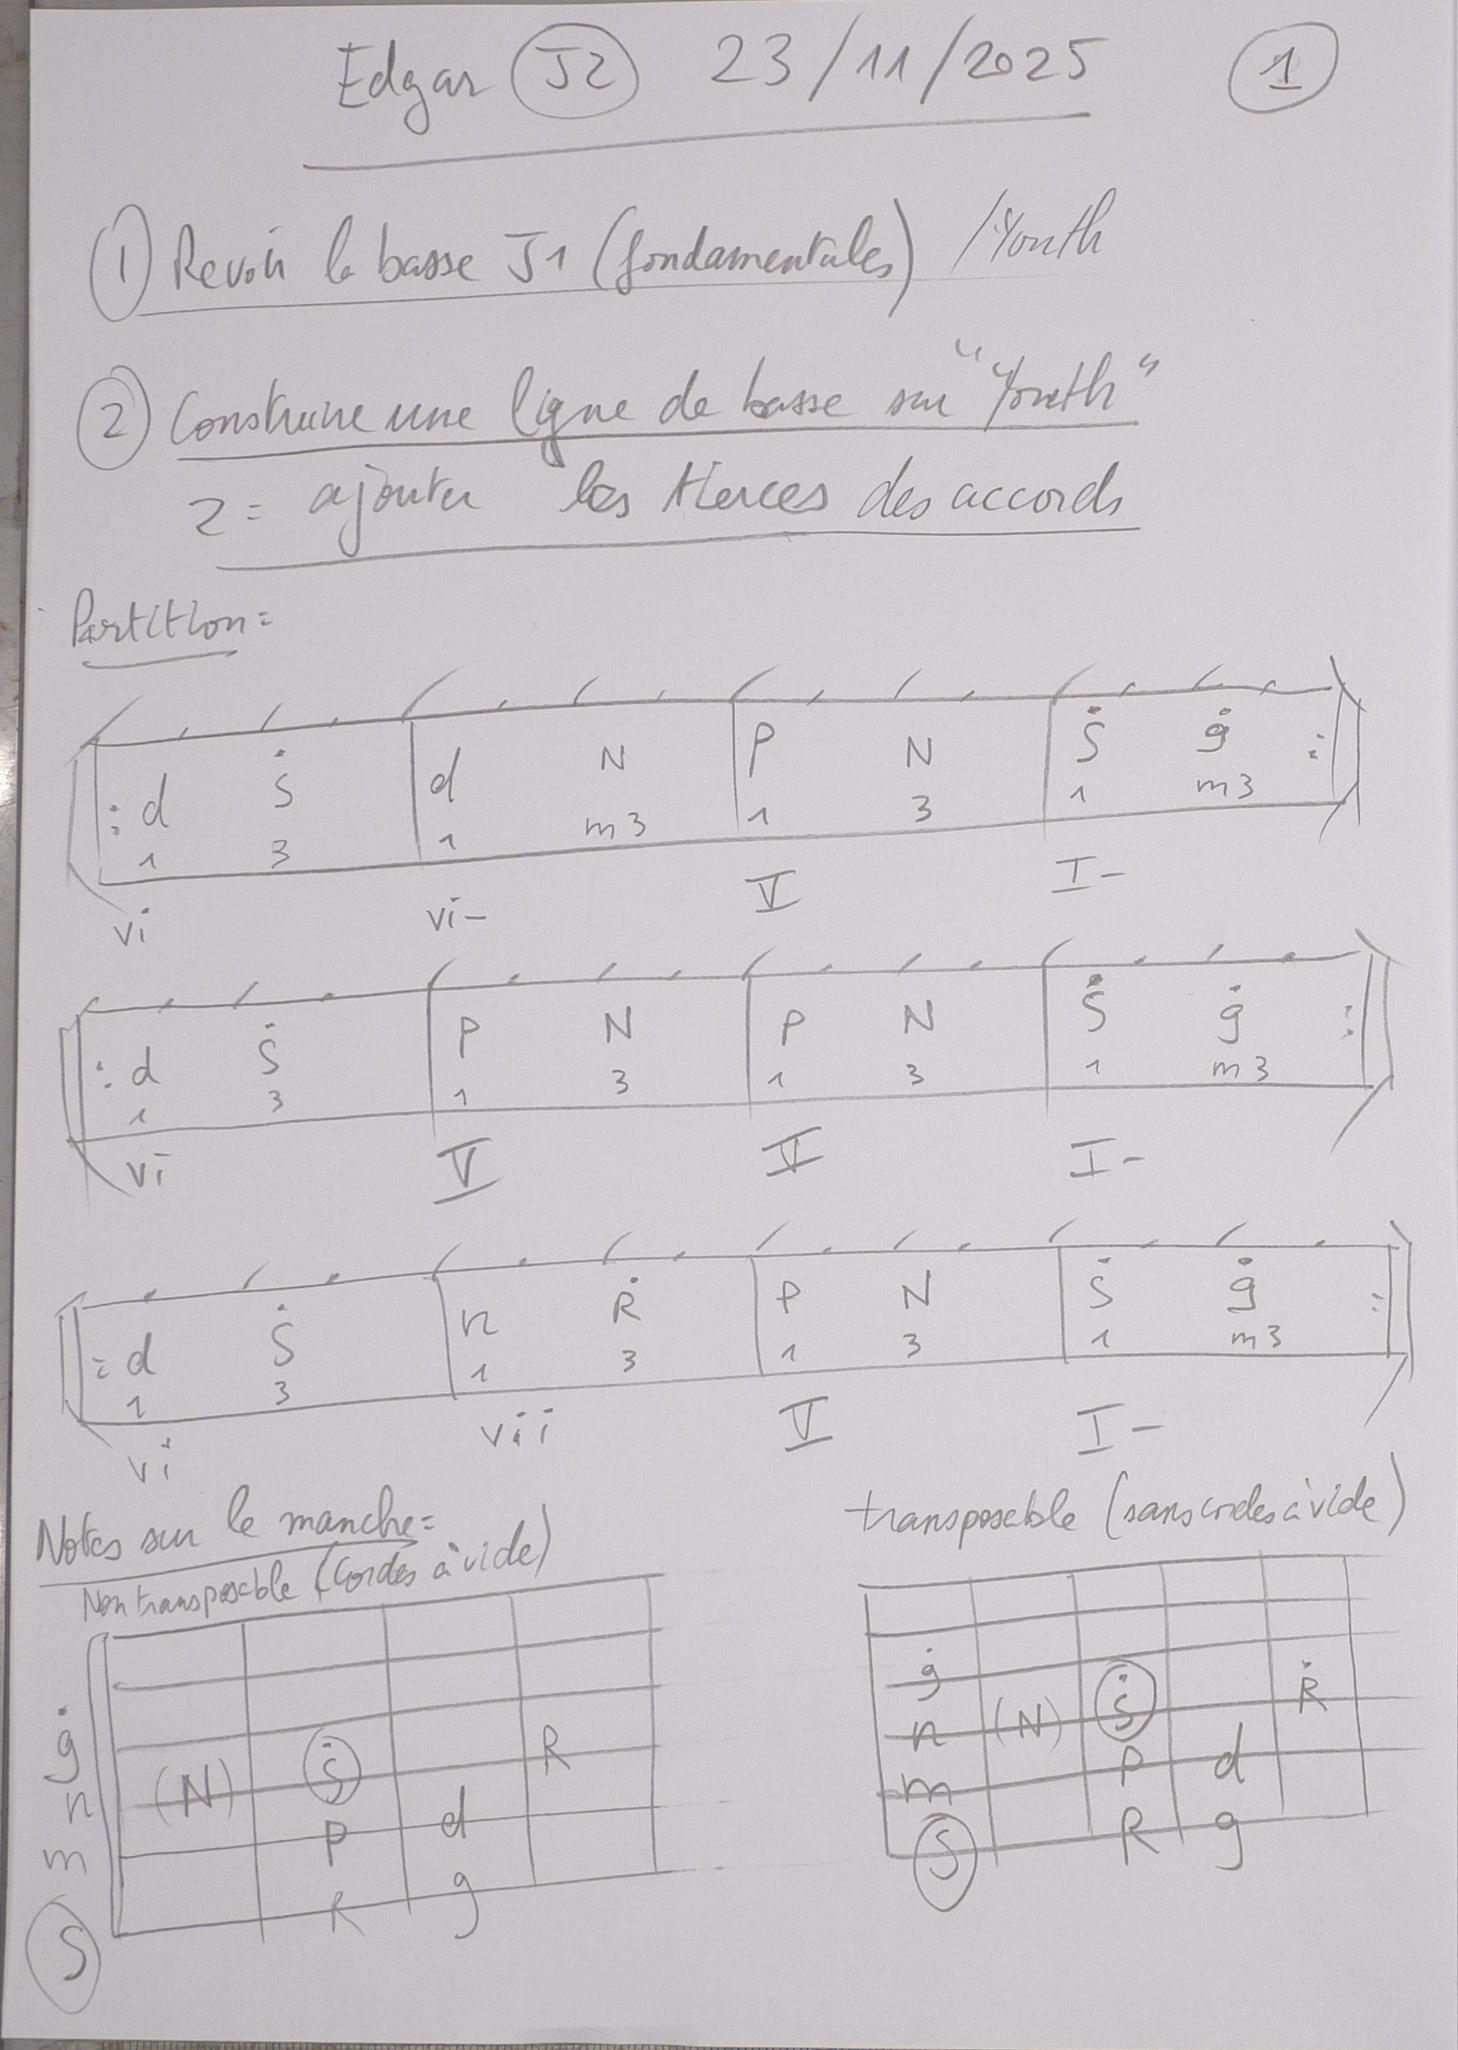 Edgar J2 23/11/2025 1
1 Revoir la basse J1 (fondamentales) /Youth
2 Construire une ligne de basse sur "Youth"
2 = ajouter les tierces des accords
Partition =
: d Ṡ d N P N Ṡ ġ :
1 3 1 m3 1 3 1 m3
vi vi- V I-
: d Ṡ P N P N Ṡ ġ :
1 3 1 3 1 3 1 m3
vi V V I-
: d Ṡ n Ṙ P N Ṡ ġ :
1 3 1 3 1 3 1 m3
vi vii V I-
Notes sur le manche =
Non transposable (Cordes à vide)
ġ
n (N) Ṡ R
m P d
S R g
transposable (sans cordes à vide)
ġ
n (N) Ṡ Ṙ
m P d
S R g